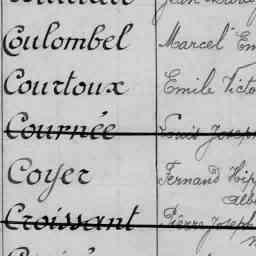 Coulombel Marcel Em
Courtoux Emile Victo
Cournée Louis Joseph
Coyer Fernand Hip
Albe
Croissant Pierre Joseph